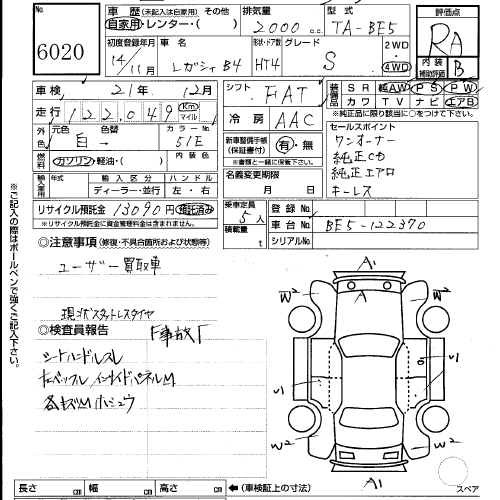 No.
6020
車歴 (未記入は自家用)
自家用・レンター・( )
排気量
2000 cc
型式
TA-BE5
評価点
RA
内装
補助評価
B
初度登録年月
14/11月
車名
レガシィ B4
形状・ドア数
HT4
グレード
S
2WD
4WD
車検 21年 12月
走行 122,049 Km マイル
シフト
FIAT
冷房
AAC
装備品
SR 純AW PS PW
カワ TV ナビ エアB
※純正品に限り該当に○をつけて下さい。
外色
元色
白→
色替
カラーNo.
51E
燃料
ガソリン・軽油・( )
内装色
新車整備手帳
(保証書付)
有・無
※書類と一緒に保管下さい。
セールスポイント
ワンオーナー
純正CD
純正エアロ
キーレス
輸入車用
年式
輸入区分
ディーラー・並行
ハンドル
左・右
名義変更期限
月 日
リサイクル預託金 13090円 預託済み
※リサイクル預託金に資金管理料金は含まれません。
乗車定員
5人
積載量
t
登録No.
車台No. BE5-122370
シリアルNo.
◎注意事項 (修復・不具合箇所および状態等)
ユーザー買取車
現状スタットレスタイヤ
◎検査員報告
「事故」
シートハンドルスレ
左バックフル/インサイドパネルM
各キズM ホシュウ
※ご記入の際はボールペンで強くご記入下さい。
A1
A
W2
W2
U1
U1
W2
W2
A1
スペア
長さ cm 幅 cm 高さ cm ←(車検証上の寸法)